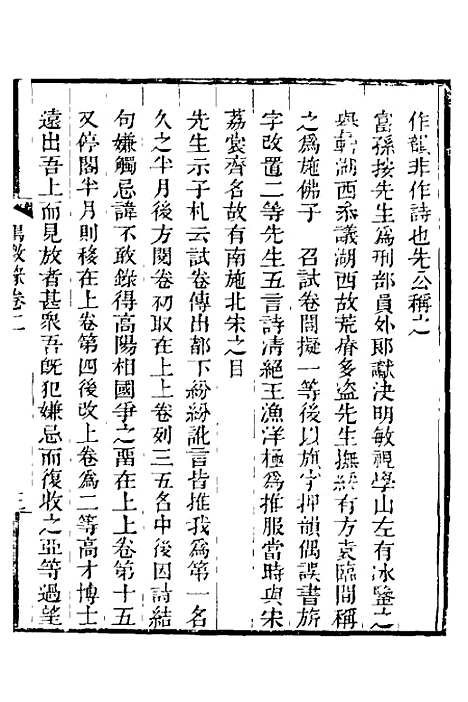 作韻非作詩也先公稱之
富孫按先生爲刑部員外郎獻決明敏視學山左有冰鑒之
譽轉湖西叅議湖西故荒瘠多盜先生撫綏有方袁臨間稱
之爲施佛子　召試卷閣擬一等後以旗字押韻偶誤書旂
字改置二等先生五言詩凊絕王漁洋極爲推服當時與宋
荔裳齊名故有南施北宋之目
先生示子札云試卷傳出都下紛紛訛言皆推我爲第一名
久之半月後方閱卷初取在上上卷列三五名中後因詩結
句嫌觸忌諱不敢錄得高陽相國爭之畱在上上卷第十五
又停閣半月則移在上卷第四後改上卷爲二等高才博士
遠出吾上而見放者甚衆吾旣犯嫌忌而復收之亞等過望
徵錄卷二
三